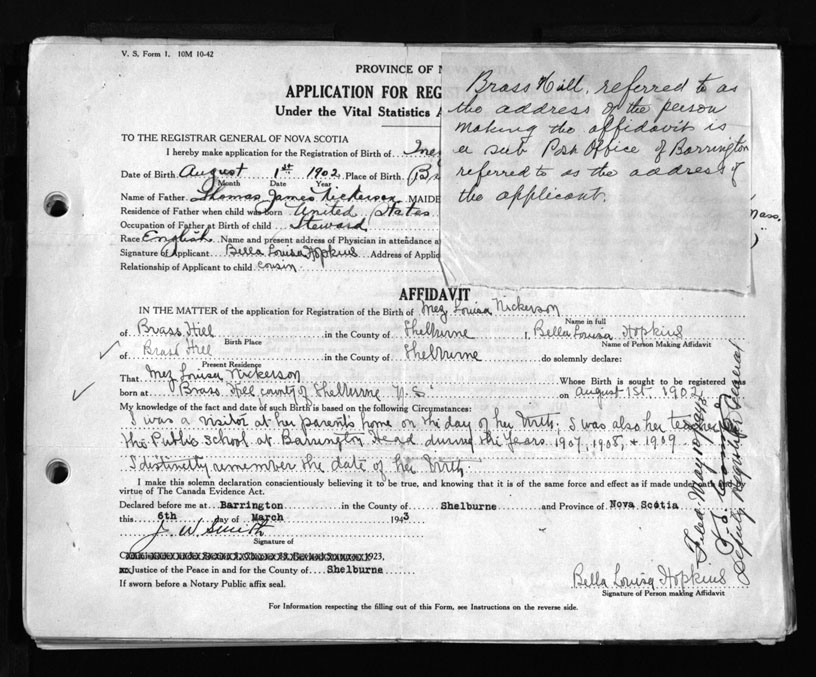 V. S. Form 1. 10M 10-42
PROVINCE OF N
APPLICATION FOR REG
Under the Vital Statistics A
Brass Hill, referred to as
the address of the person
making the affidavit is
a sub Post Office of Barrington
referred to as the address of
the applicant.
TO THE REGISTRAR GENERAL OF NOVA SCOTIA
I hereby make application for the Registration of Birth of Inez
Date of Birth August 1st 1902 Place of Birth
Month Date Year
Name of Father Thomas James Nickerson MAIDE
Mass.
Residence of Father when child was born United States
Occupation of Father at Birth of child Steward
Race English Name and present address of Physician in attendance a
Signature of Applicant Bella Louisa Hopkins Address of Applic
Relationship of Applicant to child cousin
AFFIDAVIT
IN THE MATTER of the application for Registration of the Birth of Inez Louisa Nickerson
Name in full
of Brass Hill in the County of Shelburne , Bella Louisa Hopkins
Birth Place Name of Person Making Affidavit
of Brass Hill in the County of Shelburne do solemnly declare:
Present Residence
That Inez Louisa Nickerson Whose Birth is sought to be registered was
born at Brass Hill county of Shelburne N.S. on august 1st 1902
My knowledge of the fact and date of such Birth is based on the following Circumstances:
I was a visitor at her parents home on the day of her birth; I was also her teacher
the Public School at Barrington Head during the Years 1907, 1908, + 1909
I distinctly remember the date of her birth
I make this solemn declaration conscientiously believing it to be true, and knowing that it is of the same force and effect as if made under oath and by
virtue of The Canada Evidence Act.
Declared before me at Barrington in the County of Shelburne and Province of Nova Scotia
this 6th day of March 1943
J. W. Smith
Signature of
1923,
Justice of the Peace in and for the County of Shelburne
If sworn before a Notary Public affix seal.
Bella Louisa Hopkins
Signature of Person making Affidavit
For Information respecting the filling out of this Form, see Instructions on the reverse side.
Filed May 10, 1943
Deputy Registrar General